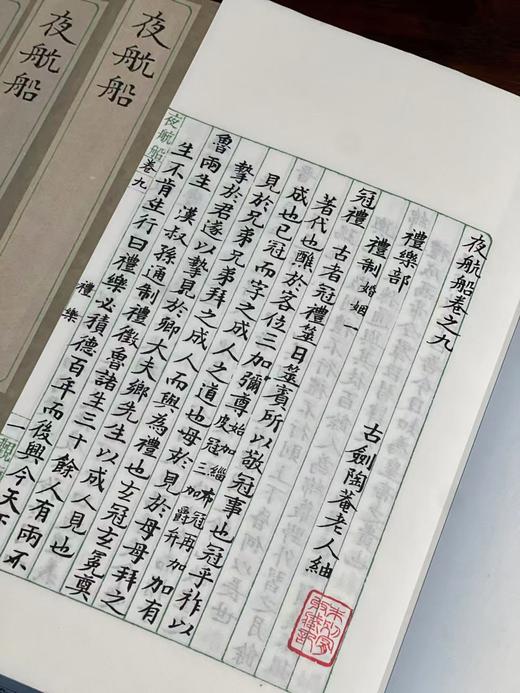 夜航船
夜航船
夜航船卷之九
古劍陶菴老人紬
禮樂部
禮制 婚姻一
冠禮 古者冠禮筮日筮賓所以敬冠事也冠乎阼以
著代也醮於客位三加彌尊始加緇布冠再加皮冠三加爵弁加有
成也已冠而字之成人之道也母於見於母母拜之
見於兄弟兄弟拜之成人而與為禮也玄冠玄冕奠
摯於君遂以摯見於卿大夫鄉先生以成人見也
魯兩生 漢叔孫通制禮徵魯諸生三十餘人有兩
生不肯行曰禮樂必積德百年而後興今天下
夜航船 卷九
禮樂
一